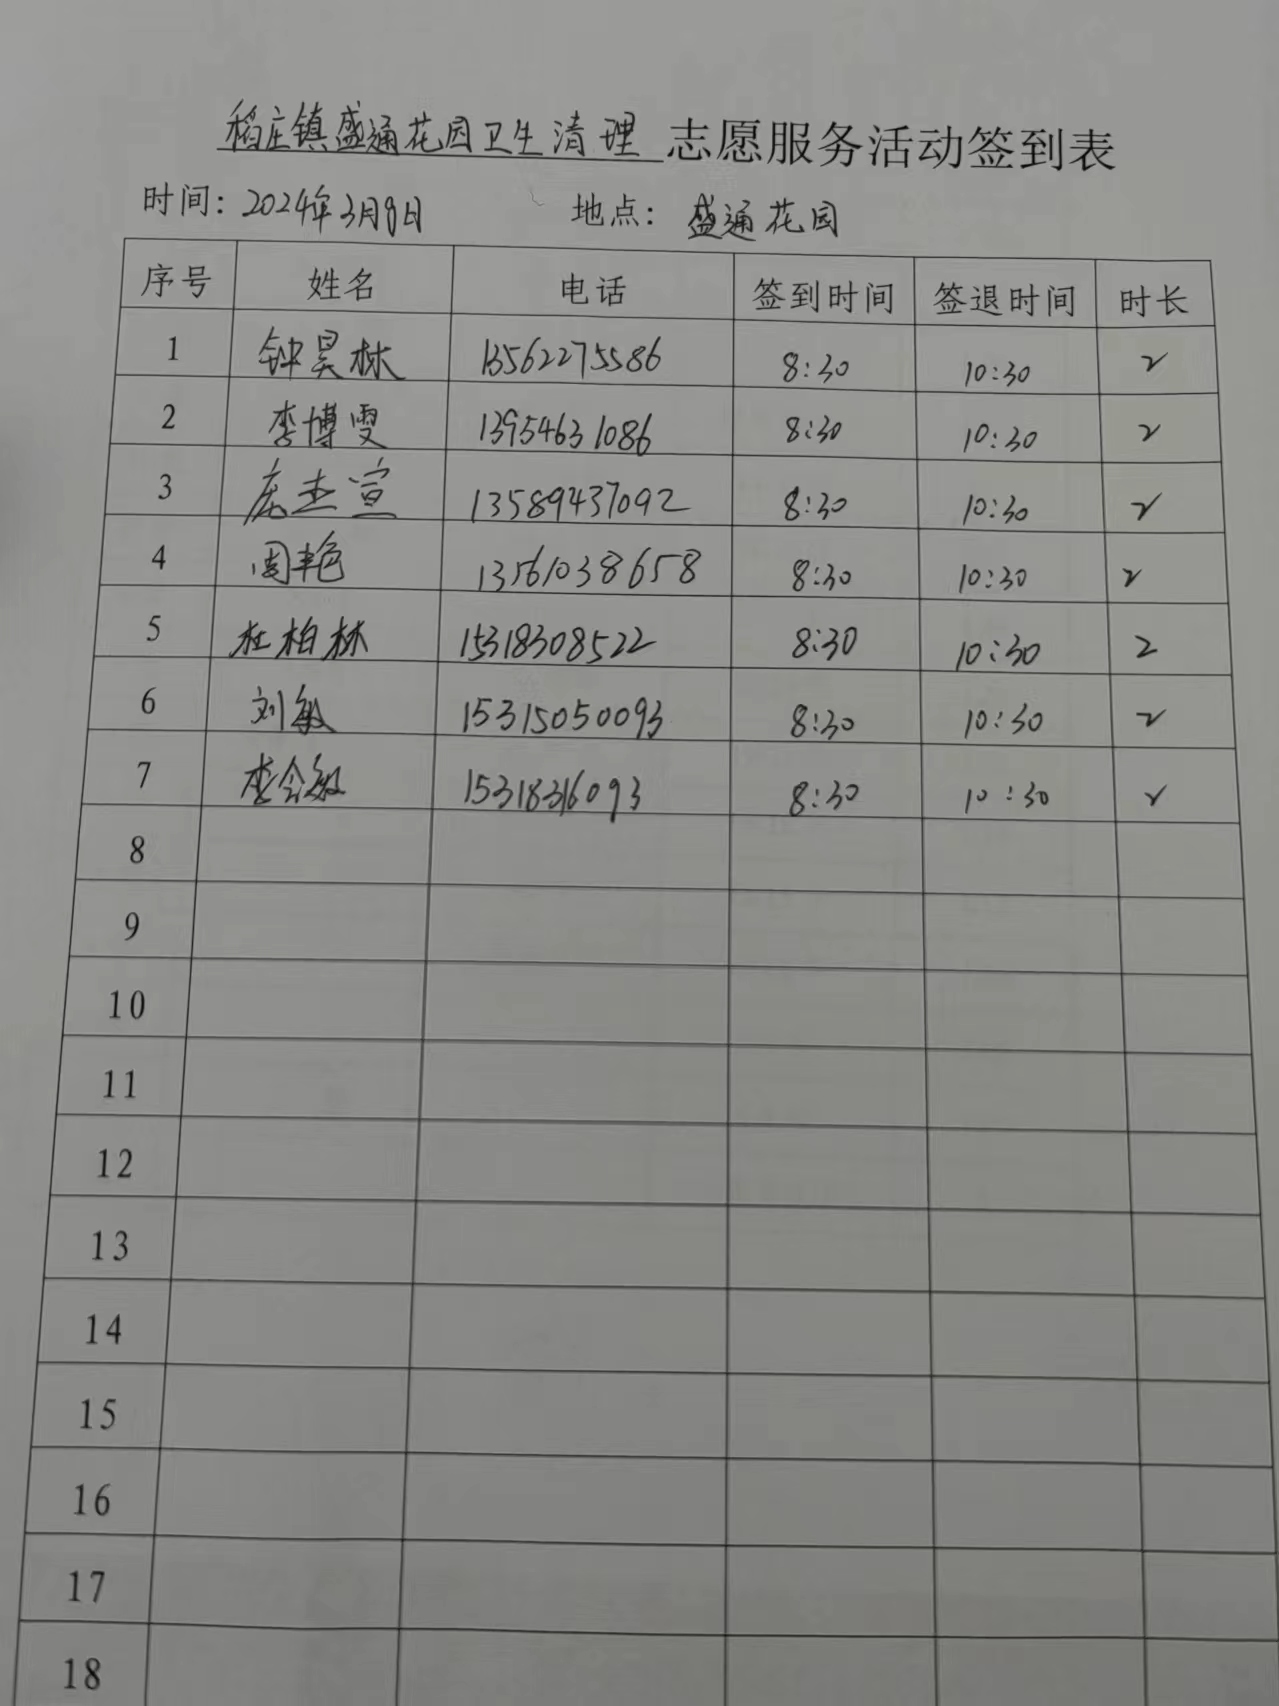 稻庄镇盛通花园卫生清理 志愿服务活动签到表
时间: 2024年3月9日 地点: 盛通花园
序号 姓名 电话 签到时间 签退时间 时长
1 钟昊林 13562275586 8:30 10:30 2
2 李博雯 13954631086 8:30 10:30 2
3 庞杰宣 13589437092 8:30 10:30 2
4 周艳 13561038658 8:30 10:30 2
5 杜柏林 15318308522 8:30 10:30 2
6 刘敏 15315050093 8:30 10:30 2
7 李会敏 15318316093 8:30 10:30 2
8
9
10
11
12
13
14
15
16
17
18